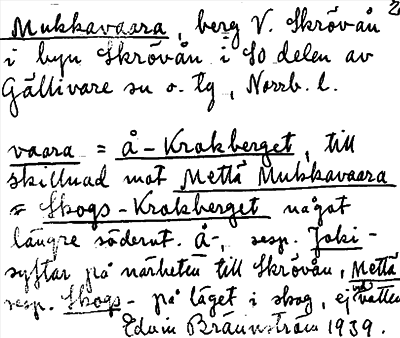 2
Mukkavaara, berg V. Skrövån
i byn Skrövån i SO delen av
Gällivare sn o. tg, Norrb. l.
vaara = Å-Krokberget, till
skillnad mot Mettä Mukkavaara
= Skogs-Krokberget något
längre söderut. Å-, resp. Joki-
syftar på närheten till Skrövån, Mettä
resp. Skogs- på läget i skog, ej vid vatten
Edvin Brännström 1939.